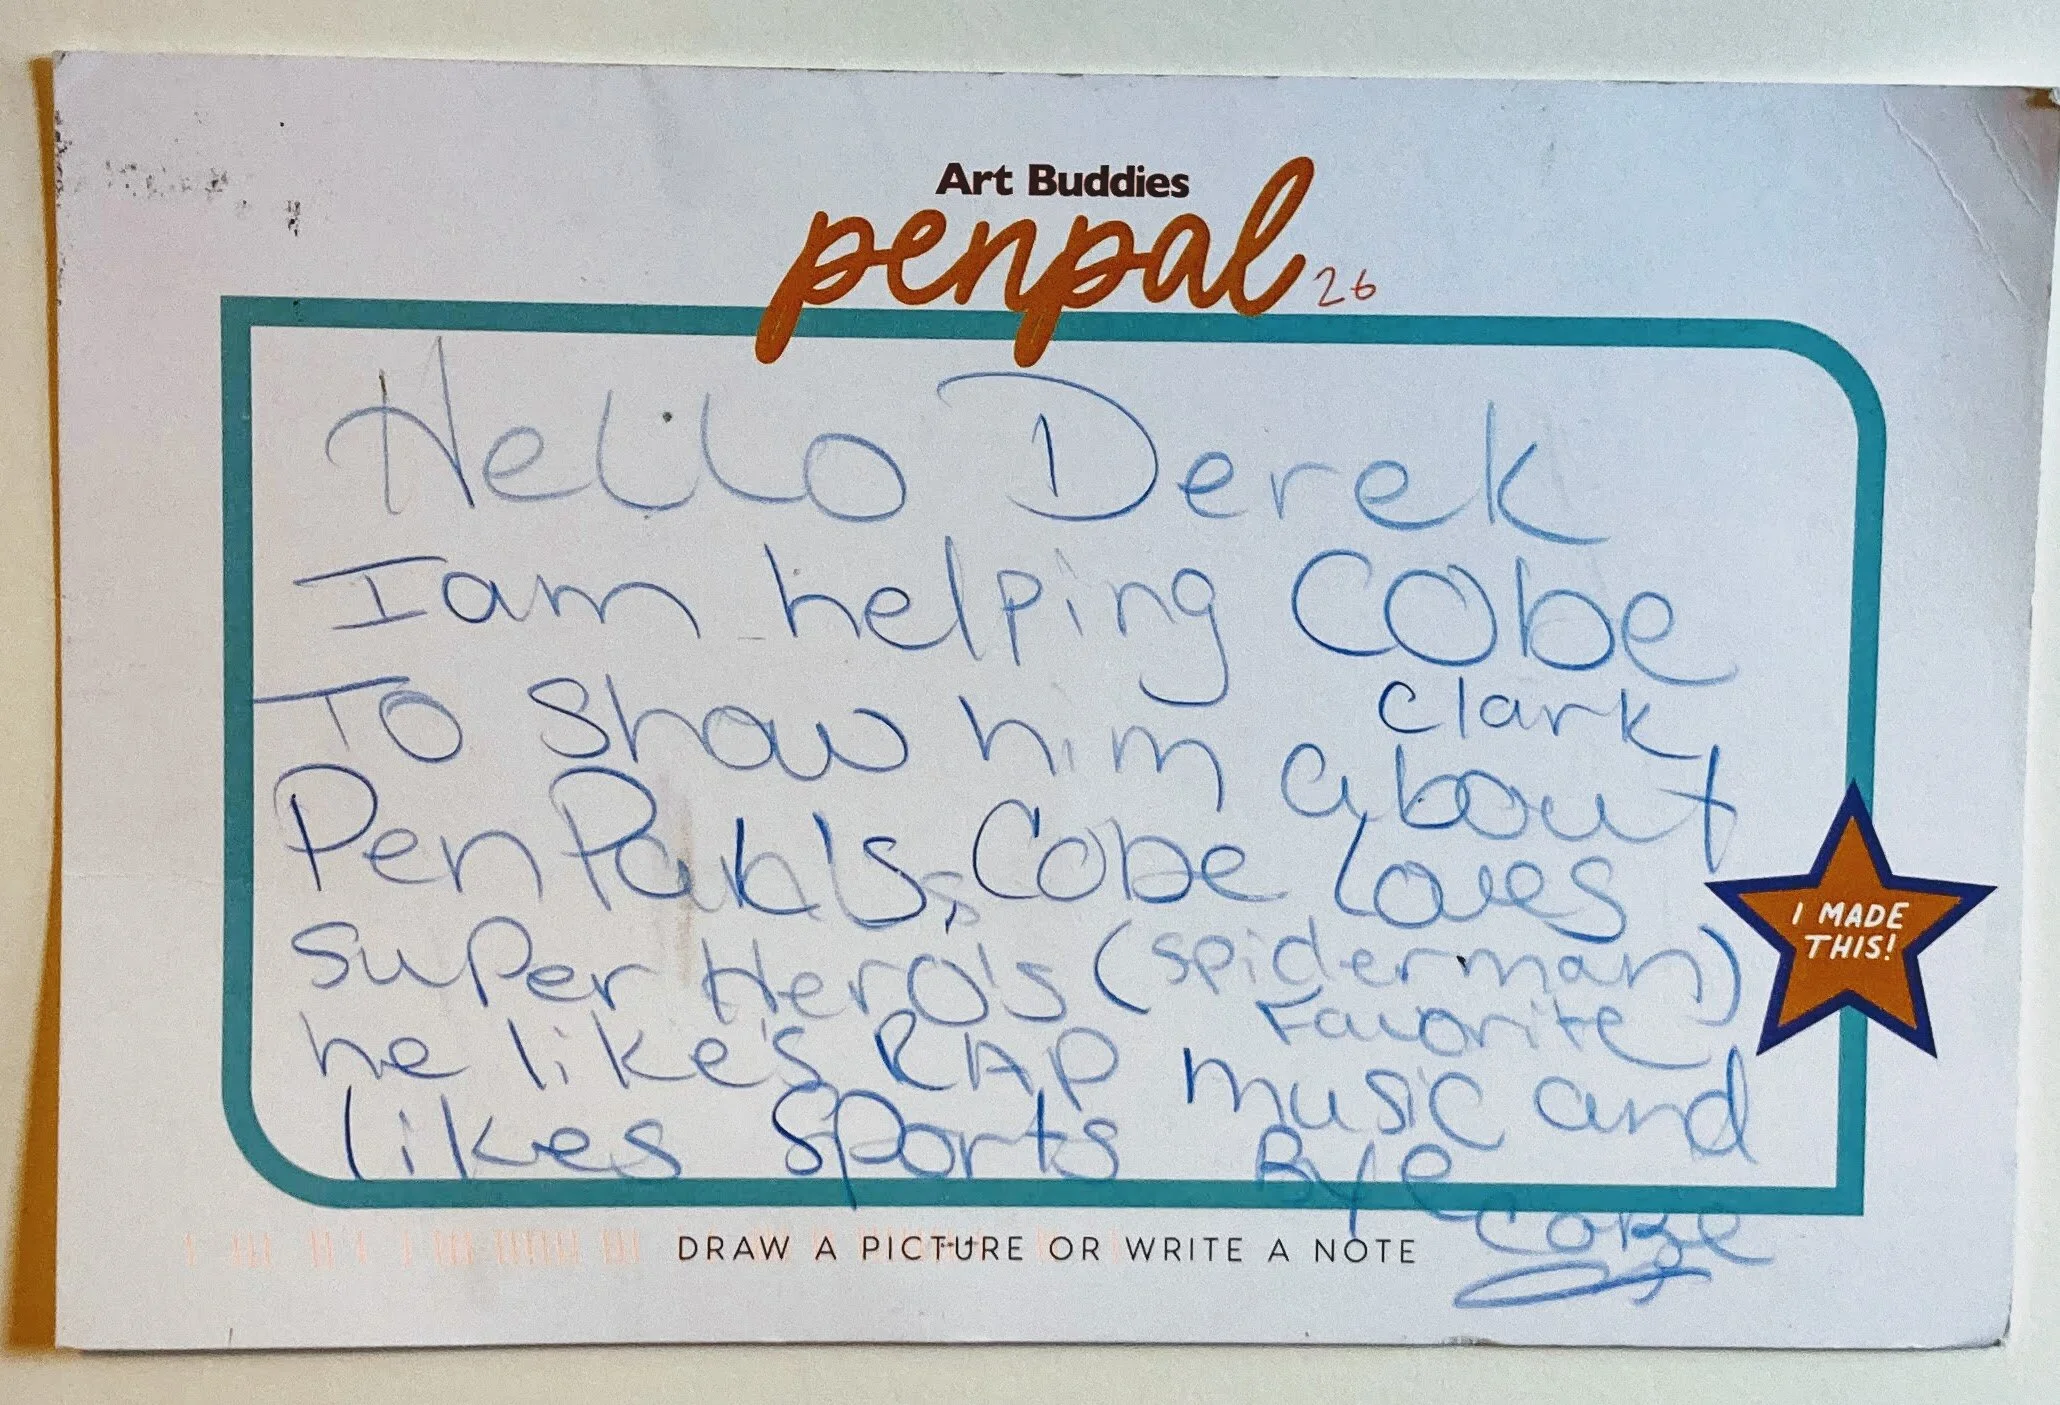 Art Buddies
penpal 26
Hello Derek
I am helping CObe
Clark
To Show him about
Pen Pals, Cobe Loves
super Hero's (spiderman)
Favorite
he like's RAP music and
likes sports Bye
CoBe
I MADE
THIS!
DRAW A PICTURE OR WRITE A NOTE